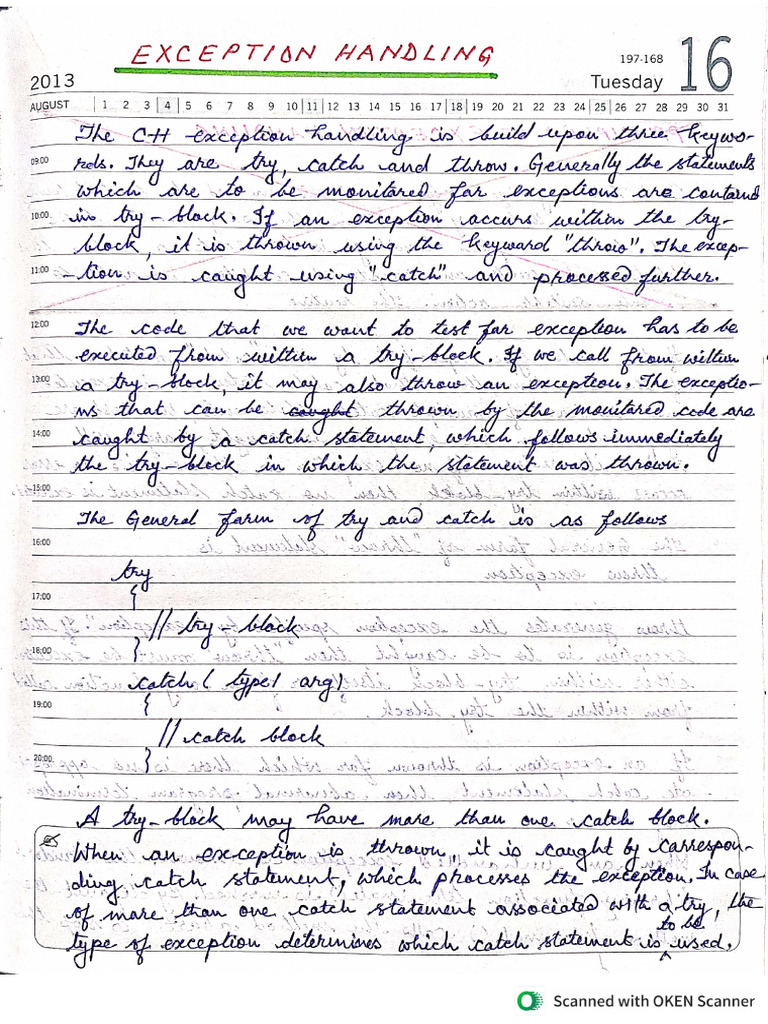 EXCEPTION HANDLING
197-168
2013
Tuesday 16
AUGUST 1 2 3 4 5 6 7 8 9 10 11 12 13 14 15 16 17 18 19 20 21 22 23 24 25 26 27 28 29 30 31
The C++ exception handling is build upon three keywo-
09:00 rds. They are try, catch and throw. Generally the statements
which are to be monitared for exceptions are contained
10:00 in try-block. If an exception accurs within the try-
block, it is thrown using the keyword "throw". The excep-
11:00 -tion is caught using "catch" and processed further.
12:00 The code that we want to test for exception has to be
executed from within a try-block. If we call from within
13:00 a try-block, it may also throw an exception. The exceptio-
ns that can be caught thrown by the monitared code are
14:00 caught by a catch statement, which follows immediately
the try-block in which the statement was thrown.
15:00
The General form of try and catch is as follows
16:00
try
17:00 {
// try-block
18:00 }
catch( type1 arg)
19:00 {
// catch block
20:00 }
A try-block may have more than one catch block.
When an exception is thrown it is caught by correspon-
ding catch statement, which processes the exception. In case
of more than one catch statement associated with a try, the
to be
type of exception determines which catch statement is used.
Scanned with OKEN Scanner